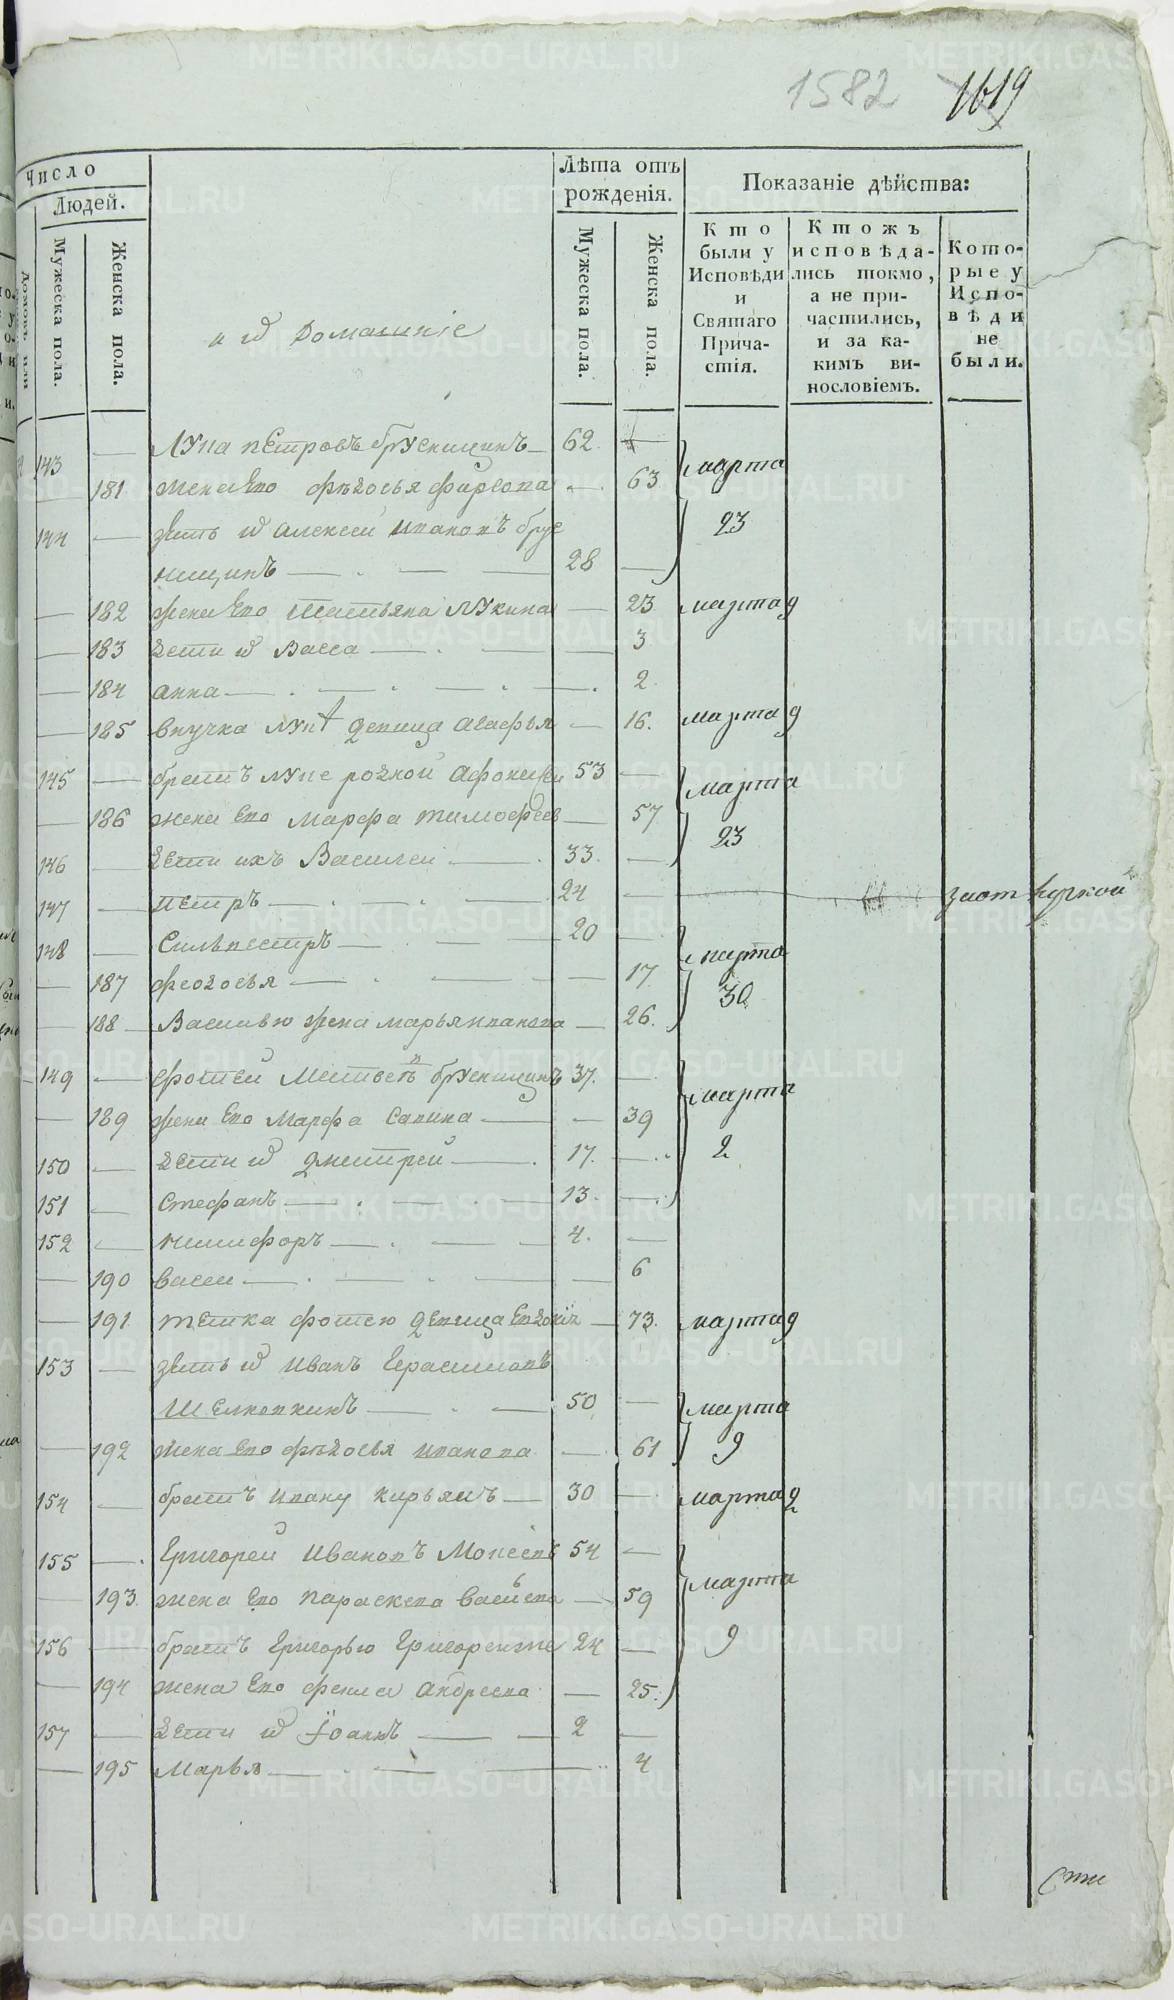 1582 1619
Число
Людей.
Мужеска пола.
Женска пола.
и ихъ домашніе
Лѣта отъ рожденія.
Мужеска пола.
Женска пола.
Показаніе дѣйства:
Кто были у Исповѣди и Святаго Причастія.
Ктожъ исповѣдались токмо, а не причастились, и за какимъ винословіемъ.
Которые у Исповѣди не были.
143 — Лупа Петровъ Брусницинъ — 62 — марта
— 181 жена Его Фѣдосья Фирсова — 63
144 — зять и Алексей Ивановъ Брус 23
ницинъ — 28 —
— 182 жена Его Татьяна Лукина — 23 марта 9
— 183 дети и Васса — 3
— 184 Анна — 2
— 185 внучка Лупѣ девица Агафья — 16. марта 9
145 — братъ Лупе родной 53 — марта
— 186 жена Его Марфа Тимофеев — 57 23
146 — дети ихъ Василей — 33. —
147 — Петръ — 24 — заот
148 — Сильвестръ — 20 — марта
— 187 Феодосья — 17 30
— 188 Василью жена Марья Иванова — 26.
149 — Фотей Матвеевъ Брусницинъ 37. — марта
— 189 жена Его Марфа Савина — 39 2
150 — дети и Дмитрей — 17. —
151 — Стефанъ — 13. —
152 — Никифоръ — 4. —
— 190 Васса — 6
— 191 тетка Фотею девица Евдокія — 73. марта 9
153 — зять и Иванъ Герасимовъ
Шелкопкинъ — 50 — марта
— 192 жена Его Фѣдосья Иванова — 61 9
154 — братъ Ивану Кирьянъ — 30 — марта 2
155 — Григорей Ивановъ Мопсеевъ 54 — марта
— 193 жена Его Параскева Васильева — 59 9
156 — братъ Григорью Григорей же 24 —
— 194 жена Его Фекла Андреева — 25.
157 — дети и Іоаннъ — 2 —
— 195 Марья — 4